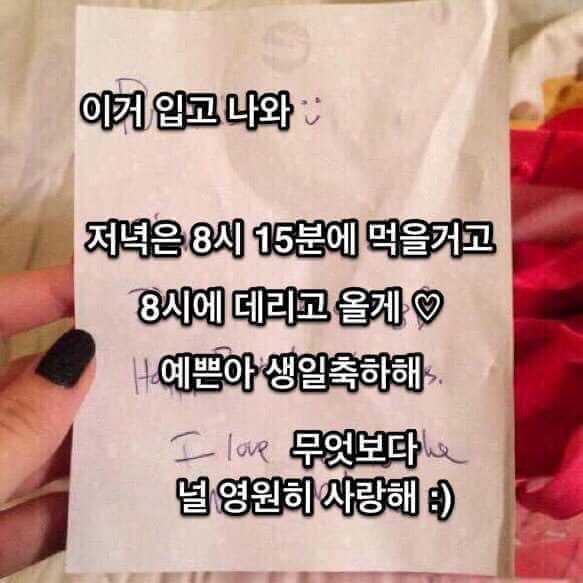 이거 입고 나와 :)
저녁은 8시 15분에 먹을거고
8시에 데리고 올게 ♡
예쁜아 생일축하해
I love 무엇보다
널 영원히 사랑해 :)